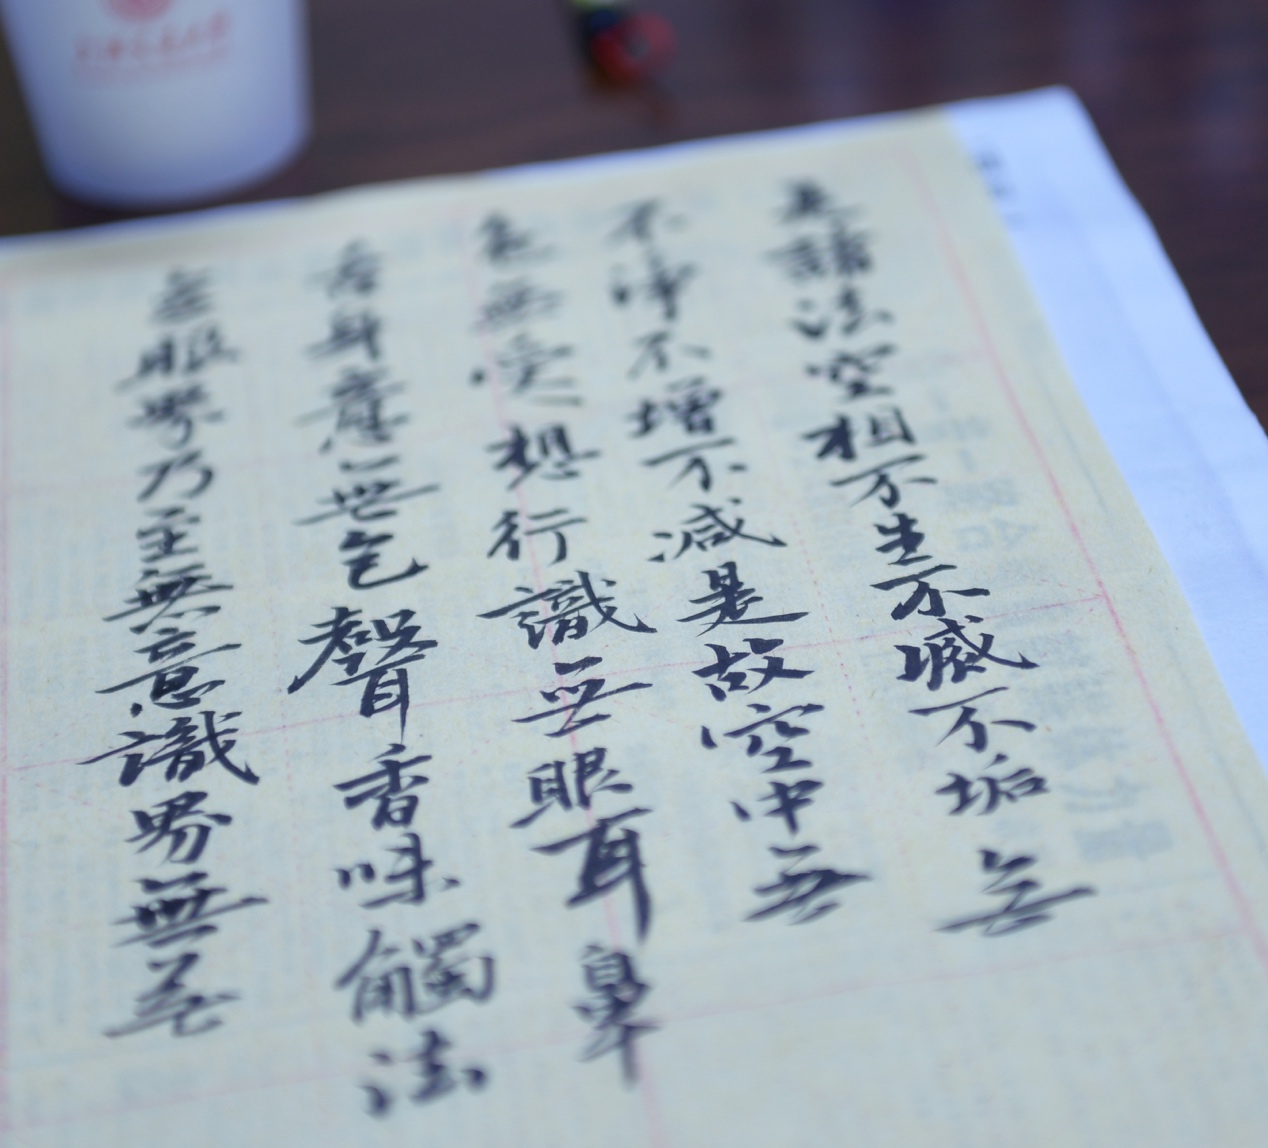 是諸法空相不生不滅不垢無
不淨不增不減是故空中無
色無受想行識無眼耳鼻
舌身意無色聲香味觸法
無眼界乃至無意識界無無